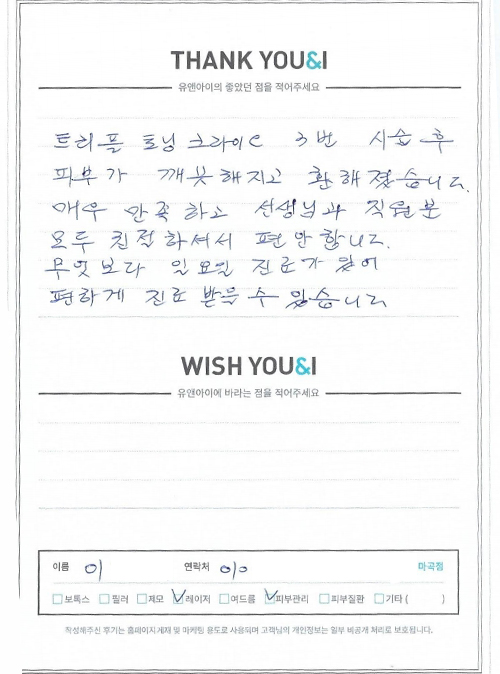 THANK YOU&I
유앤아이의 좋았던 점을 적어주세요
트리플 토닝 크라이오 3번 시술 후
피부가 깨끗해지고 환해졌습니다.
매우 만족하고 선생님과 직원분
모두 친절하셔서 편안합니다.
무엇보다 일요일 진료가 있어
편하게 진료 받을 수 있습니다
WISH YOU&I
유앤아이에 바라는 점을 적어주세요
이름 이 연락처 010 마곡점
보톡스 필러 제모 레이저 여드름 피부관리 피부질환 기타 ( )
작성해주신 후기는 홈페이지 게재 및 마케팅 용도로 사용되며 고객님의 개인정보는 일부 비공개 처리로 보호됩니다.